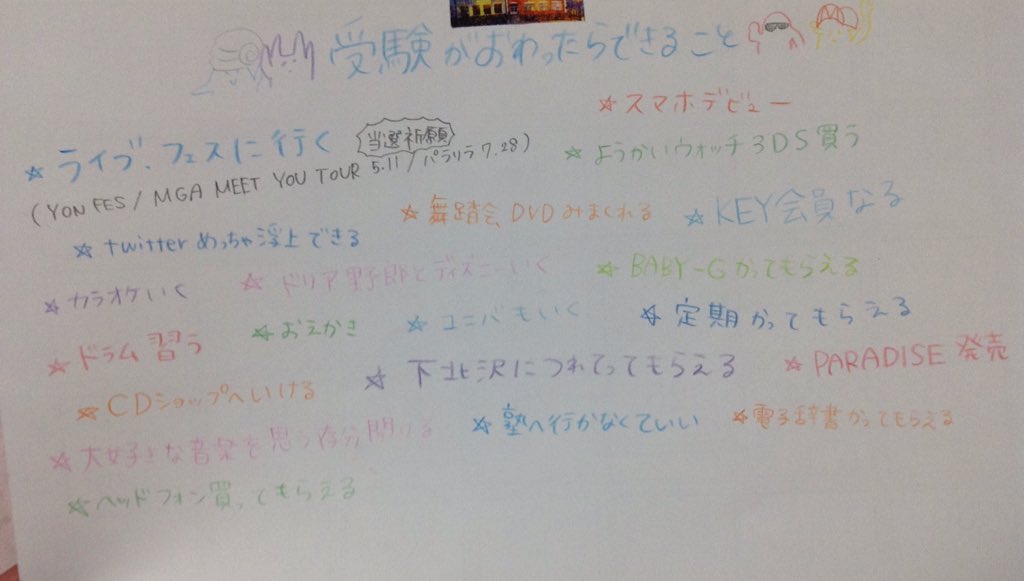 受験がおわったらできること
☆スマホデビュー
☆ライブ、フェスに行く 当選祈願
(YON FES / MGA MEET YOU TOUR 5.11 / パラリラ 7.28)
☆ようかいウォッチ3DS買う
☆舞踏会DVDみまくれる
☆KEY会員なる
☆twitterめっちゃ浮上できる
☆ドリア野郎とディズニーいく
☆BABY-Gかってもらえる
☆カラオケいく
☆おえかき
☆ユニバもいく
☆定期かってもらえる
☆ドラム習う
☆下北沢につれてってもらえる
☆PARADISE発売
☆CDショップへいける
☆塾へ行かなくていい
☆電子辞書かってもらえる
☆大好きな音楽を思う存分聞ける
☆ヘッドフォン買ってもらえる